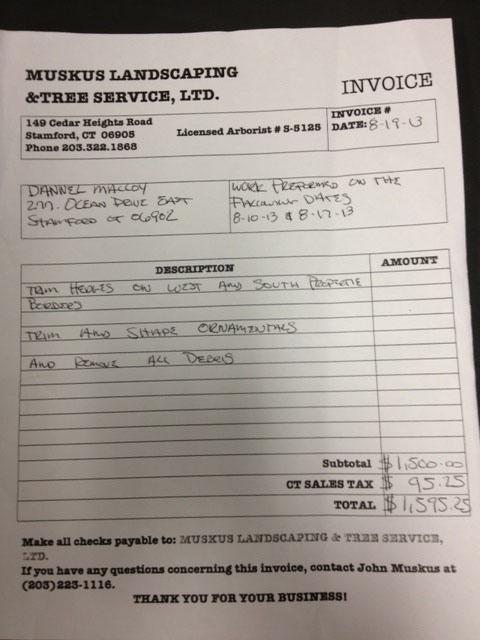 MUSKUS LANDSCAPING
&TREE SERVICE, LTD.
INVOICE
149 Cedar Heights Road
Stamford, CT 06905
Phone 203.322.1868
Licensed Arborist # S-5125
INVOICE #
DATE: 8-19-13
DANNEL MALLOY
277. OCEAN DRIVE EAST
STAMFORD CT 06902
WORK PREFORMED ON THE
DATES
8-10-13 & 8-17-13
DESCRIPTION
AMOUNT
TRIM HEDGES ON WEST AND SOUTH
BORDERS
TRIM AND SHAPE ORNAMENTALS
AND REMOVE ALL DEBRIS
Subtotal $1,500.00
CT SALES TAX $ 95.25
TOTAL $1,595.25
Make all checks payable to: MUSKUS LANDSCAPING & TREE SERVICE,
LTD.
If you have any questions concerning this invoice, contact John Muskus at
(203)223-1116.
THANK YOU FOR YOUR BUSINESS!